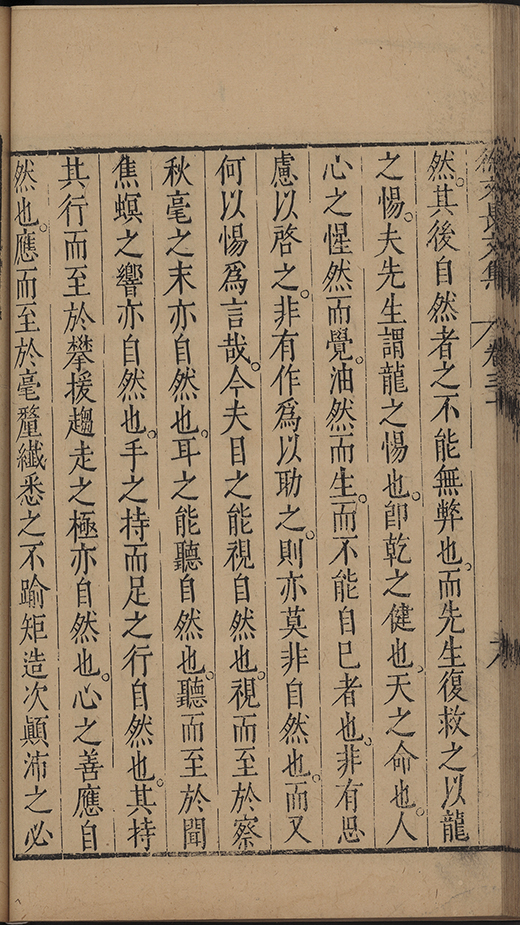 徐文長文集 卷三十
然。其後自然者之不能無弊也。而先生復救之以龍
之惕。夫先生謂龍之惕也。卽乾之健也。天之命也。人
心之惺然而覺。油然而生。而不能自已者也。非有思
慮以啓之。非有作爲以助之。則亦莫非自然也。而又
何以惕爲言哉。今夫目之能視自然也。視而至於察
秋毫之末亦自然也。耳之能聽自然也。聽而至於聞
焦螟之響亦自然也。手之持而足之行自然也。其持
其行而至於攀援趨走之極亦自然也。心之善應自
然也。應而至於毫釐纖悉之不踰矩造次顚沛之必